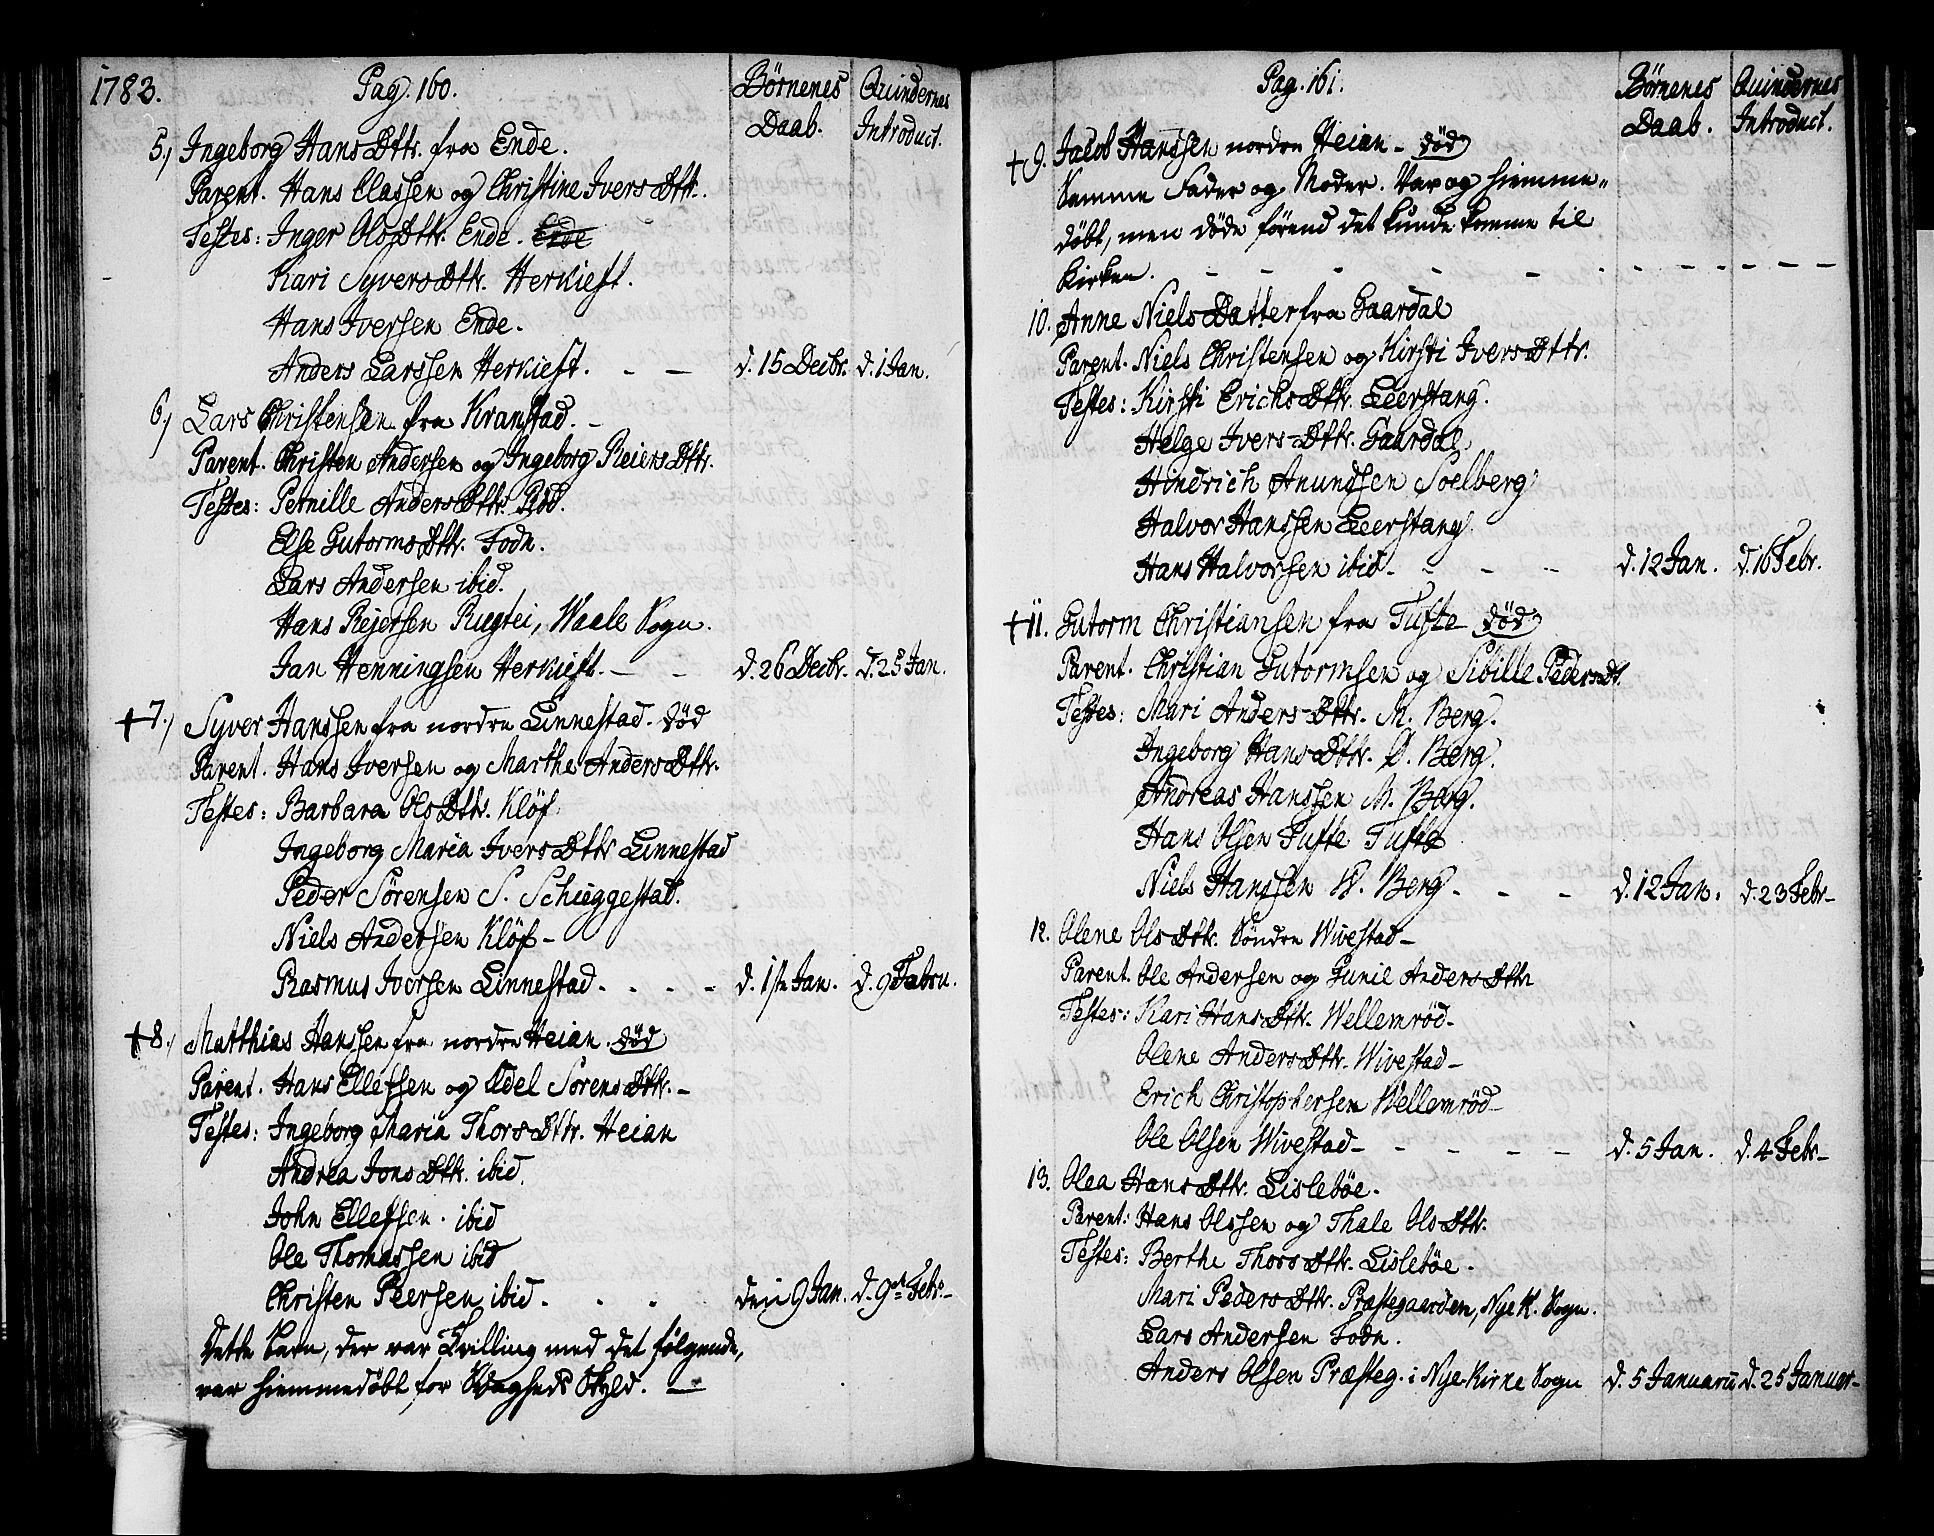 1783.
Pag. 160.
Börnenes Daab.
Quindernes Introduct.
5.) Ingeborg HansDttr. fra Ende.
Parent. Hans Classen og Christine IversDttr.
Testes: Inger OlsDttr. Ende. Ende
Kari SyversDttr. Herkieft.
Hans Iversen Ende.
Anders Larssen Herkieft. - - d. 15 Decbr. d. 1 Jan.
6.) Lars Christensen fra Kranstad. -
Parent. Christen Andersen og Ingeborg ReiersDttr.
Testes: Pernille AndersDttr. Röd.
Else GutormsDttr. Fodn.
Lars Andersen ibid.
Hans Reiersen Rugtei, Waale Sogn.
Jan Henningsen Herkieft. - - d. 26 Decbr. d. 25 Jan.
+ 7.) Syver Hanssen fra nordre Linnestad. död
Parent. Hans Iversen og Marthe AndersDttr.
Testes: Barbara OlsDttr. Klöf.
Ingeborg Maria IversDttr Linnestad
Peder Sörensen S. Schieggestad.
Niels Andersen Klöf -
Rasmus Iversen Linnestad. - - - - d. 1ste Jan. d. 9 Febru.
+ 8.) Matthias Hanssen fra nordre Heian. död
Parent. Hans Ellefsen og Edel SorensDttr. -
Testes: Ingeborg Maria ThorsDttr. Heian
Andrea JonsDttr. ibid.
John Ellefsen. ibid
Ole Thomassen ibid
Christen Peersen ibid. - - - den 9 Jan. d. 9de Febr. -
Dette barn, der var Tvilling med det fölgende,
var hiemmedöbt for Svagheds Skyld. -
Pag. 161.
Börnenes Daab.
Quindernes Introduct.
+ 9. Jacob Hanssen nordre Heian - död
Samme Fader og Moder. Var og hiemme=
döbt, men döde förend det kunde komme til
Kirken. - - - - - - - - - - -
10. Anne NielsDatter fra Gaardal
Parent. Niels Christensen og Kirsti IversDttr.
Testes: Kirsti ErichsDttr. Leerstang.
Helge Ivers-Dttr. Gaardal
Hindrich Anundsen Soelberg
Halvor Hanssen Leerstang.
Hans Halvorsen ibid - - - - d. 12 Jan. d. 16 Febr.
+ 11. Gutorm Christiansen fra Tufte död
Parent. Christian Gutormsen og Sibille PedersDt.
Testes: Mari Anders-Dttr. M. Berg.
Ingeborg HansDttr. Ö. Berg.
Andreas Hanssen M. Berg.
Hans Olsen Tufte Tufte
Niels Hanssen N. Berg - - - d. 12 Jan. d. 23 Febr -
12. Olene OlsDttr. Söndre Wivestad -
Parent. Ole Andersen og Gunil AndersDttr
Testes: Kari HansDttr. Wellemröd -
Olene AndersDttr. Wivestad -
Erich Christophersen Wellemröd -
Ole Olsen Wivestad - - - - - d. 5 Jan. d. 4 Febr -
13. Olea HansDttr. Lisleböe.
Parent: Hans Olssen og Thale OlsDttr.
Testes: Berthe ThorsDttr. Lisleböe.
Mari PedersDttr. Præstegaarden, Nye K. Sogn.
Lars Andersen Fodn.
Anders Olsen Præsteg. i Nye-Kirke Sogn d. 5 Januarii d. 25 Januar -